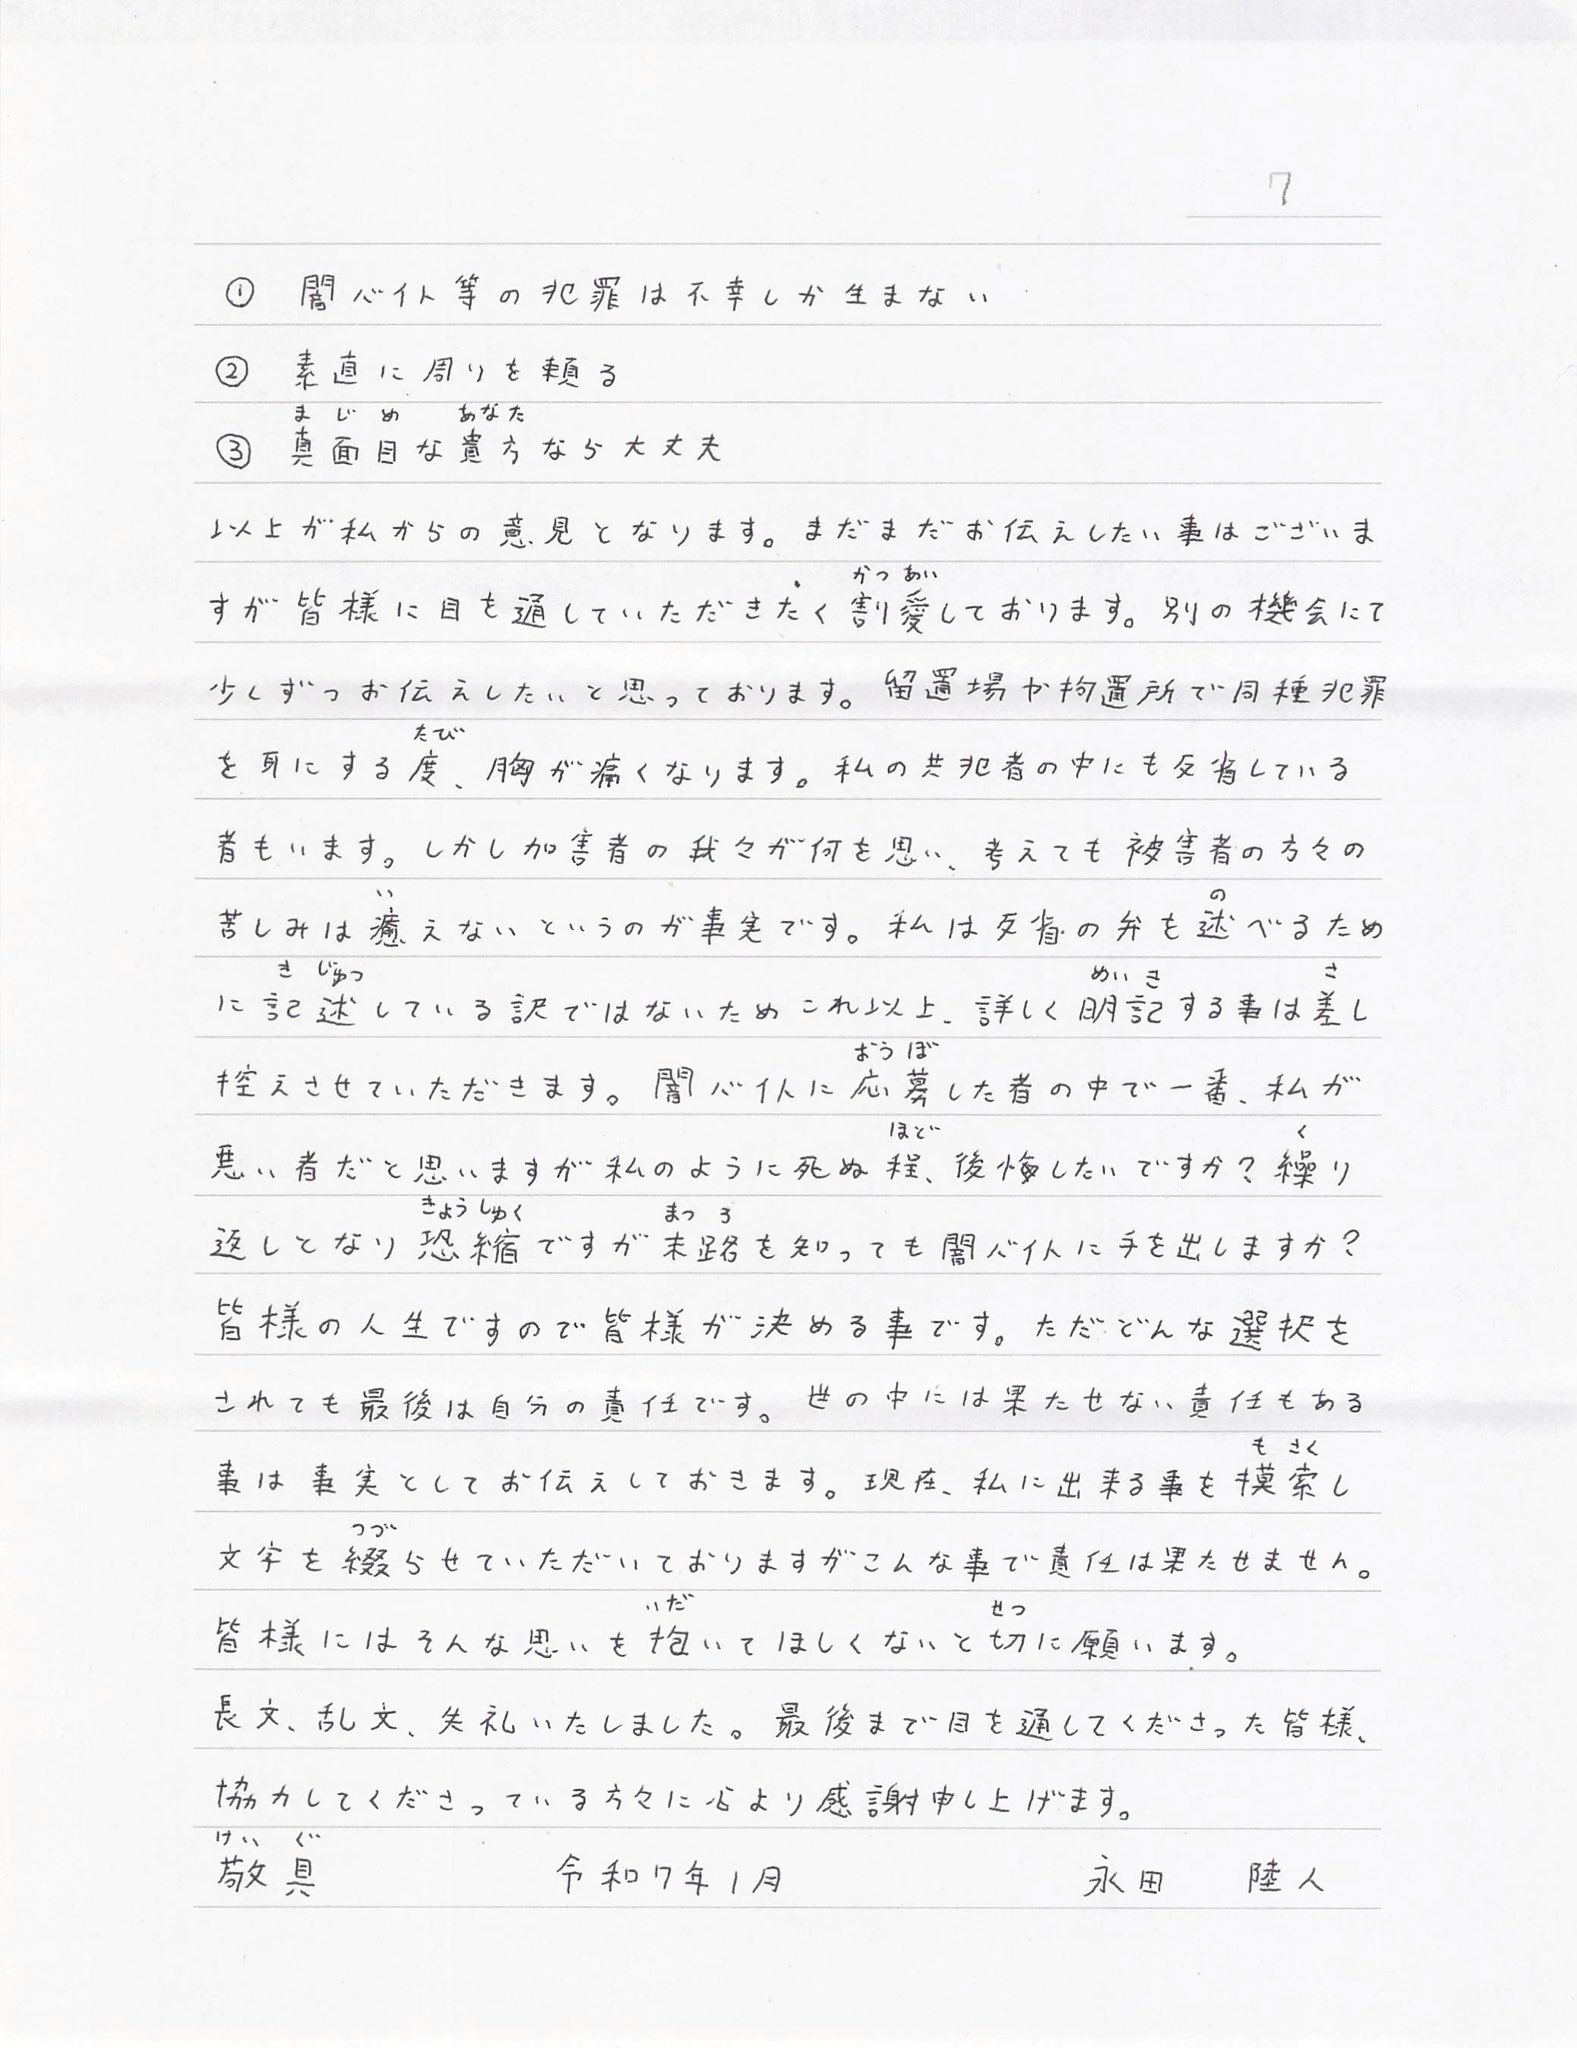 7
① 闇バイト等の犯罪は不幸しか生まない
② 素直に周りを頼る
まじめ あなた
③ 真面目な貴方なら大丈夫
以上が私からの意見となります。まだまだお伝えしたい事はございま
かつあい
すが皆様に目を通していただきたく割愛しております。別の機会にて
少しずつお伝えしたいと思っております。留置場や拘置所で同種犯罪
たび
を耳にする度、胸が痛くなります。私の共犯者の中にも反省している
者もいます。しかし加害者の我々が何を思い、考えても被害者の方々の
い の
苦しみは癒えないというのが事実です。私は反省の弁を述べるため
きじゅつ めいき さ
に記述している訳ではないためこれ以上、詳しく明記する事は差し
おうぼ
控えさせていただきます。闇バイトに応募した者の中で一番、私が
ほど く
悪い者だと思いますが私のように死ぬ程、後悔したいですか？繰り
きょうしゅく まつろ
返しとなり恐縮ですが末路を知っても闇バイトに手を出しますか？
皆様の人生ですので皆様が決める事です。ただどんな選択を
されても最後は自分の責任です。世の中には果たせない責任もある
もさく
事は事実としてお伝えしておきます。現在、私に出来る事を模索し
つづ
文字を綴らせていただいておりますがこんな事で責任は果たせません。
いだ せつ
皆様にはそんな思いを抱いてほしくないと切に願います。
長文、乱文、失礼いたしました。最後まで目を通してくださった皆様、
協力してくださっている方々に心より感謝申し上げます。
けいぐ
敬具 令和7年1月 永田 陸人